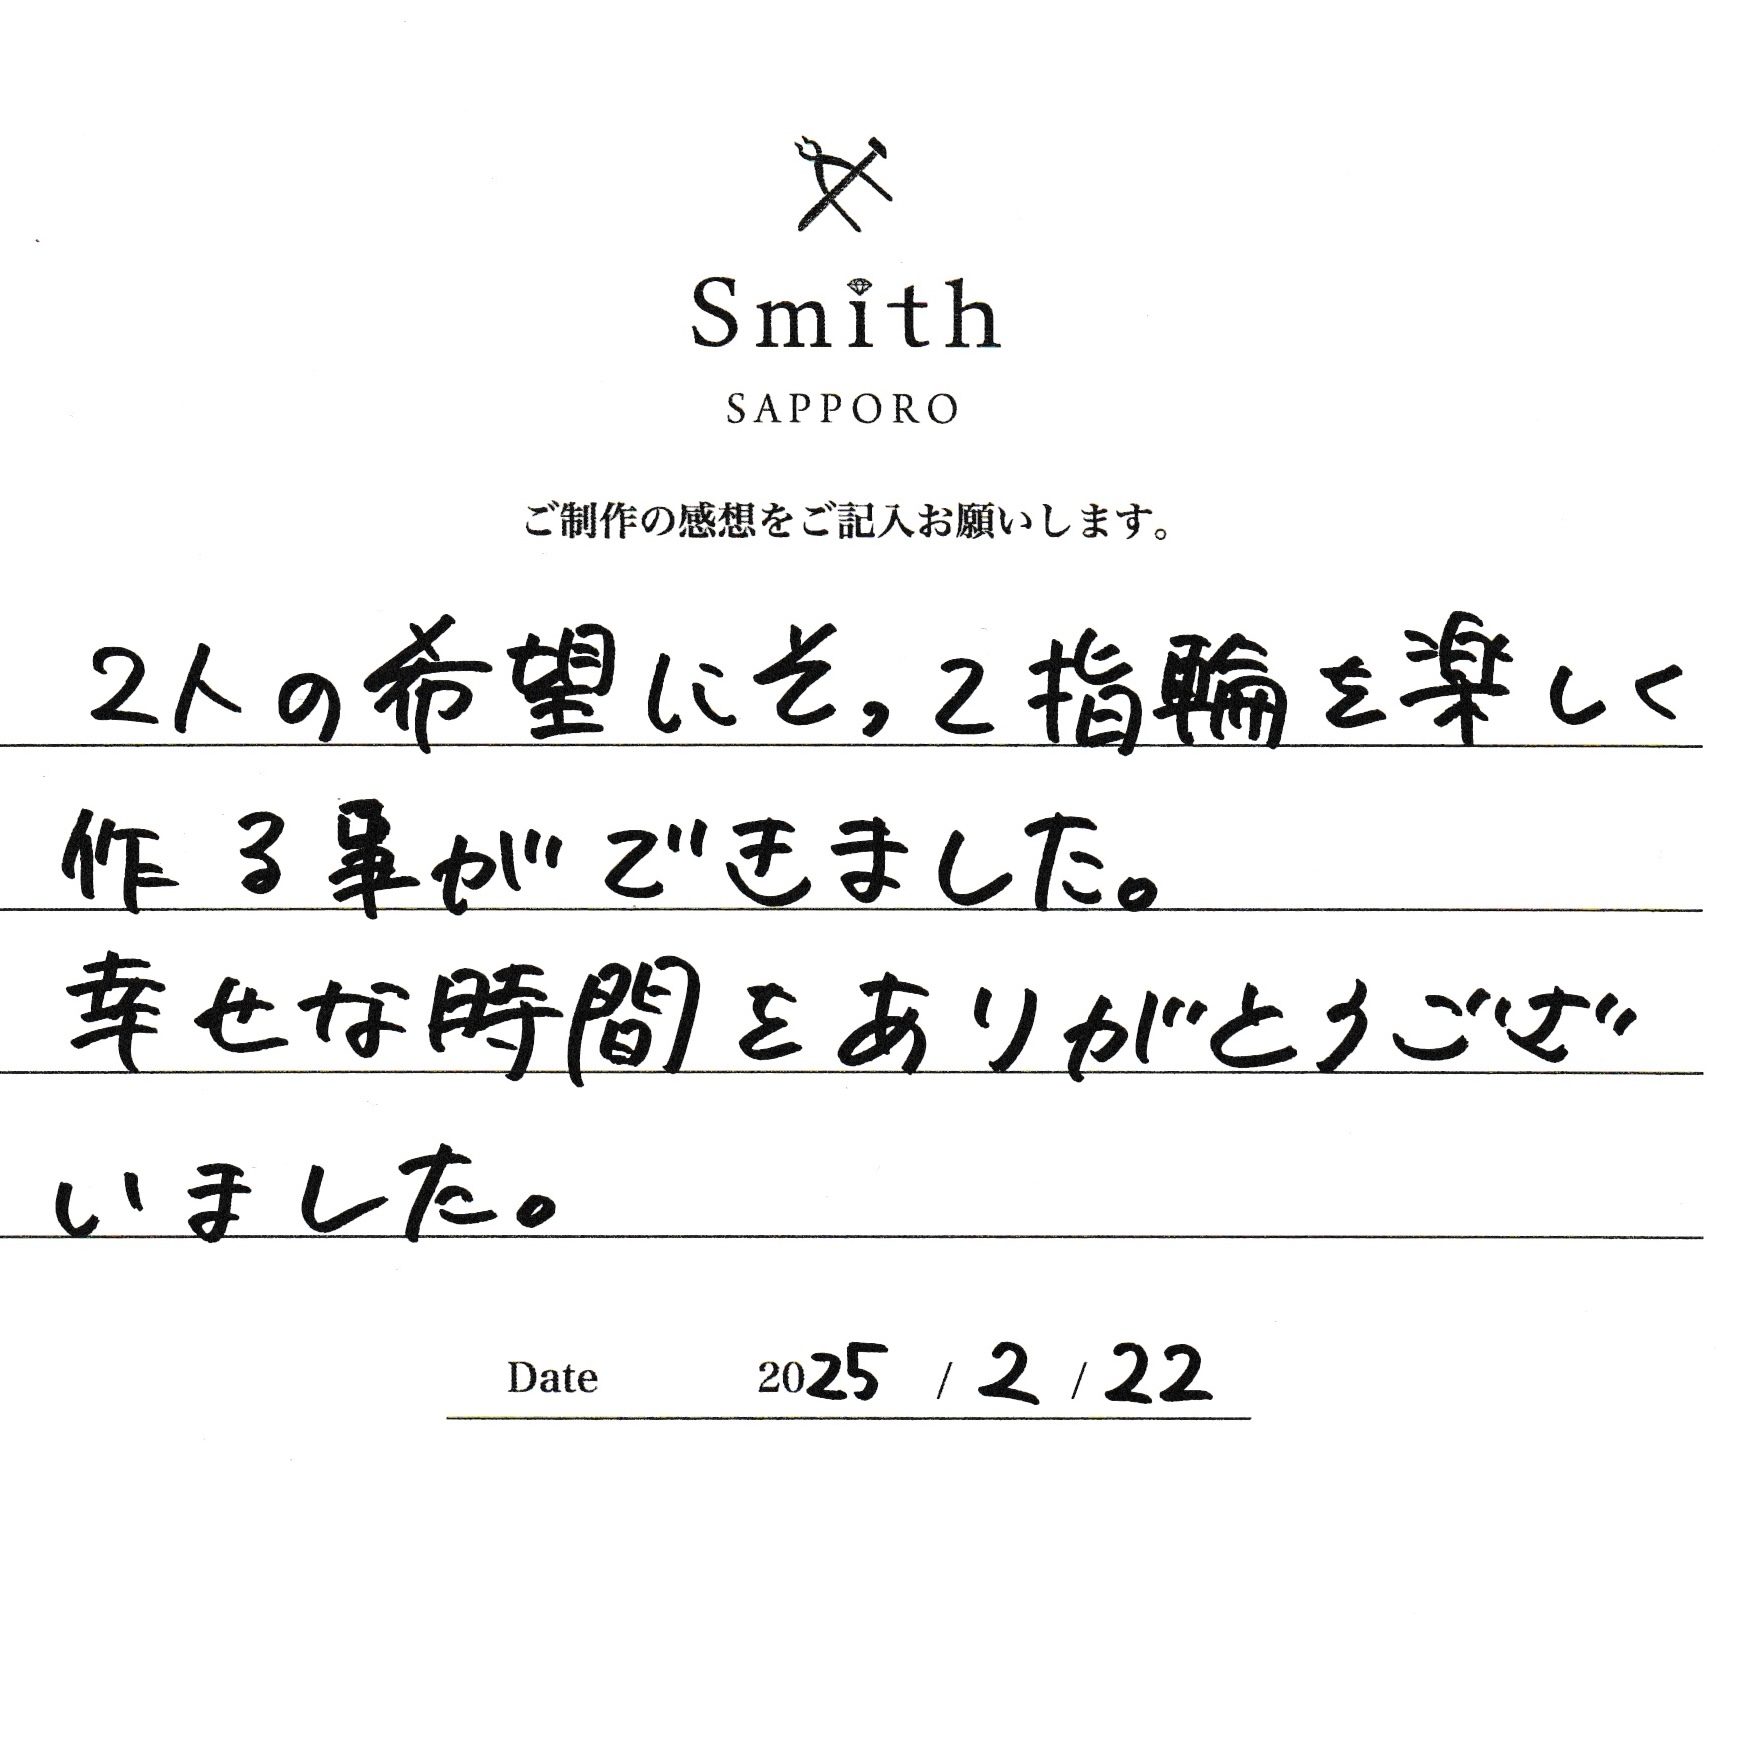 Smith
SAPPORO
ご制作の感想をご記入お願いします。
2人の希望にそって指輪を楽しく
作る事ができました。
幸せな時間をありがとうござ
いました。
Date 2025 / 2 / 22